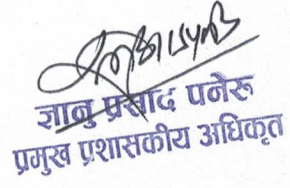 ज्ञानु प्रसाद पनेरू
प्रमुख प्रशासकीय अधिकृत